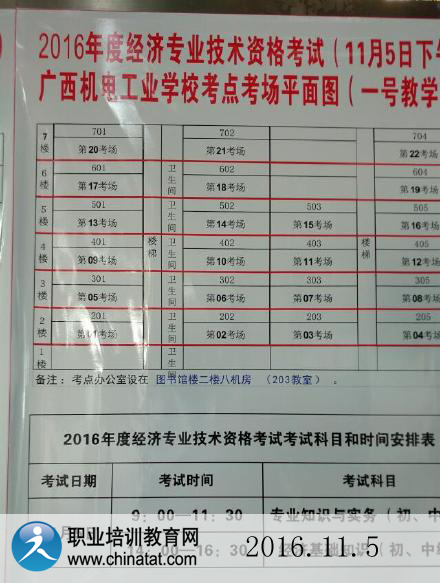 2016年度经济专业技术资格考试（11月5日下午
广西机电工业学校考点考场平面图（一号教学
7楼 701 702 704
第20考场 第21考场 第22考场
6楼 601 卫生间 602 604
第17考场 第18考场 第19考场
5楼 501 卫生间 502 503 505
第13考场 第14考场 第15考场 第16考场
4楼 401 楼梯 卫生间 402 403 楼梯 405
第09考场 第10考场 第11考场 第12考场
3楼 301 卫生间 302 303 305
第05考场 第06考场 第07考场 第08考场
2楼 201 卫生间 202 203 205
第01考场 第02考场 第03考场 第04考场
1楼 卫生间
备注：考点办公室设在 图书馆楼二楼八机房 （203教室） 。
2016年度经济专业技术资格考试考试科目和时间安排表
考试日期 考试时间 考试科目
9：00—11：30 专业知识与实务（初、中
月 14：00—16：30 经济基础知识（初、中级
职业培训教育网
www.chinatat.com
2016.11.5